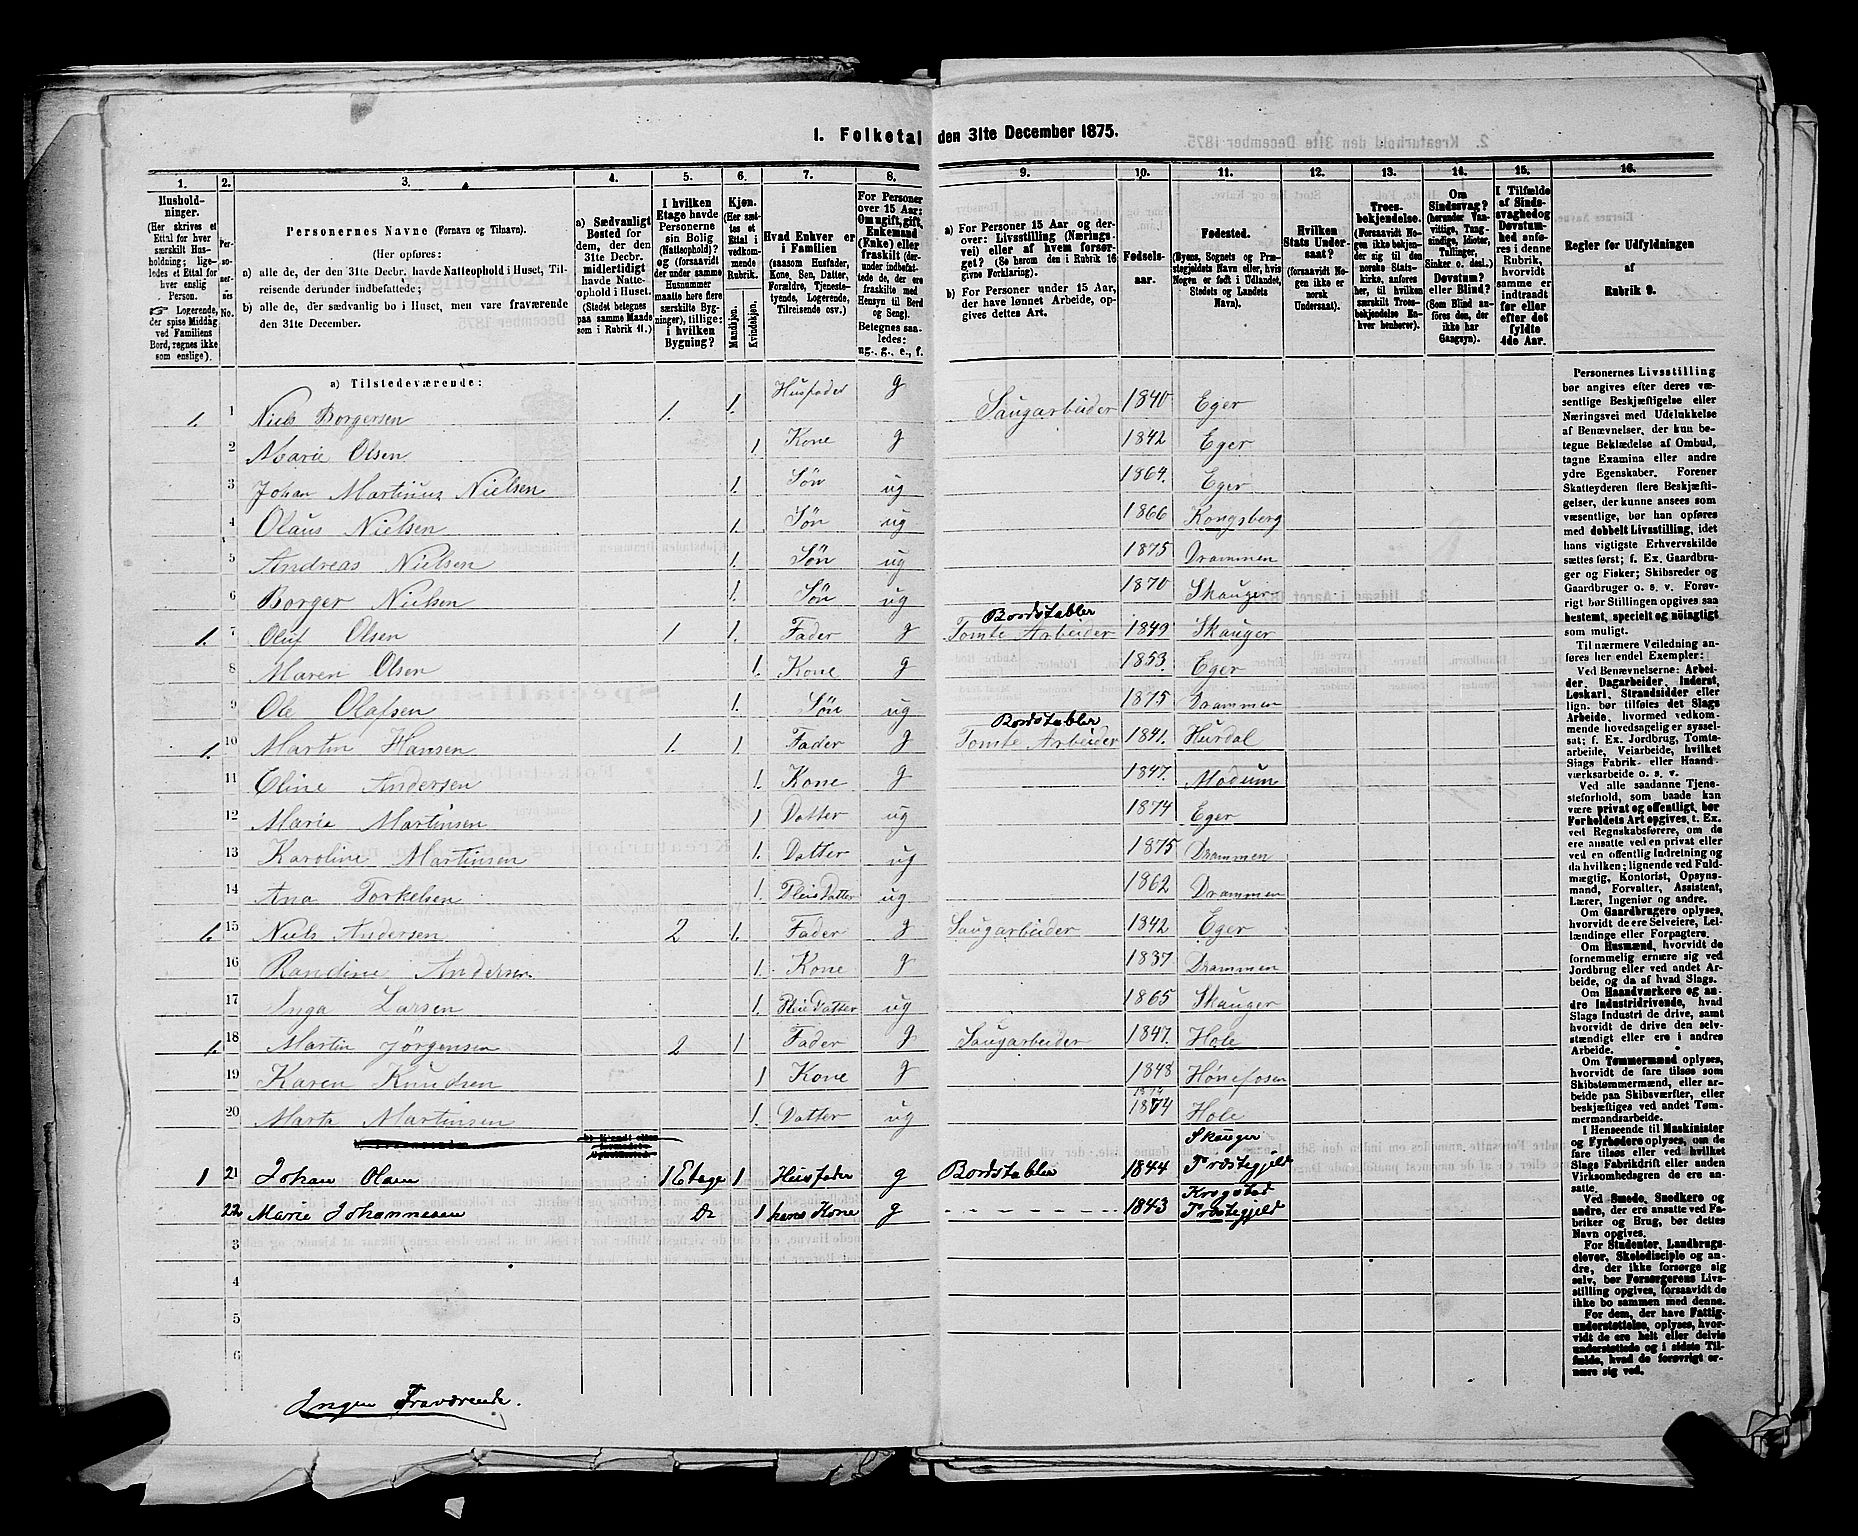 1. Folketal den 31te December 1875.
1. 2. 3. 4. 5. 6. 7. 8. 9. 10. 11. 12. 13. 14. 15. 16.
Husholdninger. (Her skrives et Ettal for hver særskilt Husholdning; ligeledes et Ettal for hver enslig Person. ☞ Logerende, der spise Middag ved Familiens Bord, regnes ikke som enslige).
Personernes No.
Personernes Navne (Fornavn og Tilnavn).
(Her opføres:
a) alle de, der den 31te Decbr. havde Natteophold i Huset, Tilreisende derunder indbefattede;
b) alle de, der sædvanlig bo i Huset, men vare fraværende den 31te December.
a) Sædvanligt Bosted for dem, der den 31te Decbr. midlertidigt havde Natteophold i Huset. (Stedet betegnes paa samme Maade som i Rubrik 11.)
I hvilken Etage havde Personerne sin Bolig (Natteophold)? og (forsaavidt der under samme Husnummer maatte høre flere særskilte Bygninger), tillige: i hvilken Bygning?
Kjøn. (Her sættes et Ettal i vedkommende Rubrik. Mandkjøn. Kvindekjøn.
Hvad Enhver er i Familien (saasom Husfader, Kone, Søn, Datter, Forældre, Tjenestetyende, Logerende, Tilreisende osv.)
For Personer over 15 Aar: Om ugift, gift, Enkemand (Enke) eller fraskilt (derunder indbefattede de, der ere fraskilte med Hensyn til Bord og Seng). Betegnes saaledes: ug., g., e., f.
a) For Personer 15 Aar og derover: Livsstilling (Næringsvei) eller af hvem forsørget? (Se herom den i Rubrik 16 givne Forklaring).
b) For Personer under 15 Aar, der have lønnet Arbeide, opgives dettes Art.
Fødselsaar.
Fødested. (Byens, Sognets og Præstegjeldets Navn eller, hvis Nogen er født i Udlandet, Stedets og Landets Navn).
Hvilken Stats Undersaat? (forsaavidt Nogen ikke er norsk Undersaat).
Troesbekjendelse. (Forsaavidt Nogen ikke bekjender sig til den norske Statskirke, anføres her, til hvilken særskilt Troesbekjendelse Enhver henhører).
Om Sindssvag? (herunder Vanvittige, Tungsindige, Idioter, Tullinger, Sinker o. desl.) Døvstum? eller Blind? (Som Blind anføres den, der ikke har Gangsyn).
I Tilfælde af Sindssvaghed og Døvstumhed anføres i denne Rubrik, hvorvidt samme er indtraadt før eller efter det fyldte 4de Aar.
Regler for Udfyldningen af Rubrik 9.
a) Tilstedeværende:
1. 1 Niels Borgersen 1. 1. Husfader g Saugarbeider 1840 Eger
2 Marie Olsen 1 Kone g 1842 Eger
3 Johan Martinus Nielsen 1. Søn ug 1864. Eger
4 Olaus Nielsen 1. Søn ug 1866 Kongsberg
5 Andreas Nielsen 1. Søn ug 1875 Drammen
6 Borger Nielsen 1. Søn ug 1870 Skauger
Bordstabler
1. 7 Oluf Olsen 1 1. Fader g Tomte Arbeider 1849 Skauger
8 Maren Olsen 1. Kone g 1853. Eger
9 Ole Olafsen 1. Søn ug 1875 Drammen
Bordstabler
1. 10 Martin Hansen 1. 1. Fader g Tomte Arbeider 1841. Hurdal
11 Eline Andersen 1. Kone g 1847. Modum
12 Marie Martinsen 1 Datter ug 1874 Eger
13 Karoline Martinsen 1. Datter ug 1875 Drammen
14 Ana Torkelsen 1. Pleis Datter ug 1862 Drammen
1. 15 Niels Andersen 2 1. Fader g Saugarbeider 1842 Eger
16 Randine Andersen 1. Kone g 1837 Drammen
17 Inga Larsen 1. Pleis Datter ug 1865 Skauger
1. 18 Martin Jörgensen 2 1 Fader g Saugarbeider 1847. Hole
19 Karen Knudsen 1 Kone g 1848 Hønefosen
20 Marta Martinsen 1. Datter ug 1874 1874 Hole
1 21 Johan Olsen 1 Etage 1 Husfader g Bordstabler 1844 Skauger Præstegjeld
22. Marie Johannesen Do 1 hans Kone g 1843 Krogstad Præstegjeld
3
4
5
6
Ingen Fraværende.
Personernes Livsstilling bør angives efter deres væsentlige Beskjæftigelse eller Næringsvei med Udelukkelse af Benævnelser, der kun betegne Beklædelse af Ombud, tagne Examina eller andre ydre Egenskaber. Forener Skatteyderen flere Beskjæftigelser, der kunne ansees som væsentlige, bør han opføres med dobbelt Livsstilling, idet hans vigtigste Erhvervskilde sættes først; f. Ex. Gaardbruger og Fisker; Skibsreder og Gaardbruger o. s. v. Forøvrigt bør Stillingen opgives saa bestemt, specielt og nøiagtigt som muligt.
Til nærmere Veiledning anføres her endel Exempler:
Ved Benævnelserne: Arbeider, Dagarbeider, Inderst, Løskarl, Strandsidder eller lign. bør tilføies det Slags Arbeide, hvormed vedkommende hovedsagelig er sysselsat; f. Ex. Jordbrug, Tomtearbeide, Veiarbeide, hvilket Slags Fabrik- eller Haandværksarbeide o. s. v.
Ved alle saadanne Tjenesteforhold, som baade kan være privat og offentligt, bør Forholdets Art opgives, t. Ex. ved Regnskabsførere, om de ere ansatte ved en privat eller ved en offentlig Indretning og da hvilken; lignende ved Fuldmægtig, Kontorist, Opsynsmand, Forvalter, Assistent, Lærer, Ingeniør og andre.
Om Gaardbrugere oplyses, hvorvidt de ere Selveiere, Leilændinge eller Forpagtere.
Om Husmænd, hvorvidt de fornemmelig ernære sig ved Jordbrug eller ved andet Arbeide, og da af hvad Slags.
Om Haandværkere og andre Industridrivende, hvad Slags Industri de drive, samt hvorvidt de drive den selvstændigt eller ere i andres Arbeide.
Om Tømmermænd oplyses, hvorvidt de fare tilsøs som Skibstømmermænd, eller arbeide paa Skibsværfter, eller beskjæftiges ved andet Tømmermandsarbeide.
I Henseende til Maskinister og Fyrbødere oplyses, om de fare tilsøs eller ved hvilket Slags Fabrikdrift eller anden Virksomhedsgren de ere ansatte.
Ved Smede, Snedkere og andre, der ere ansatte ved Fabriker og Brug, bør dettes Navn opgives.
For Studenter, Landbrugselever, Skoledisciple og andre, der ikke forsørge sig selv, bør Forsørgerens Livsstilling opgives, forsaavidt de ikke bo sammen med denne.
For dem, der have Fattigunderstøttelse, oplyses, hvorvidt de ere helt eller delvis understøttede og i sidste Tilfælde, hvad de forøvrigt ernære sig ved.